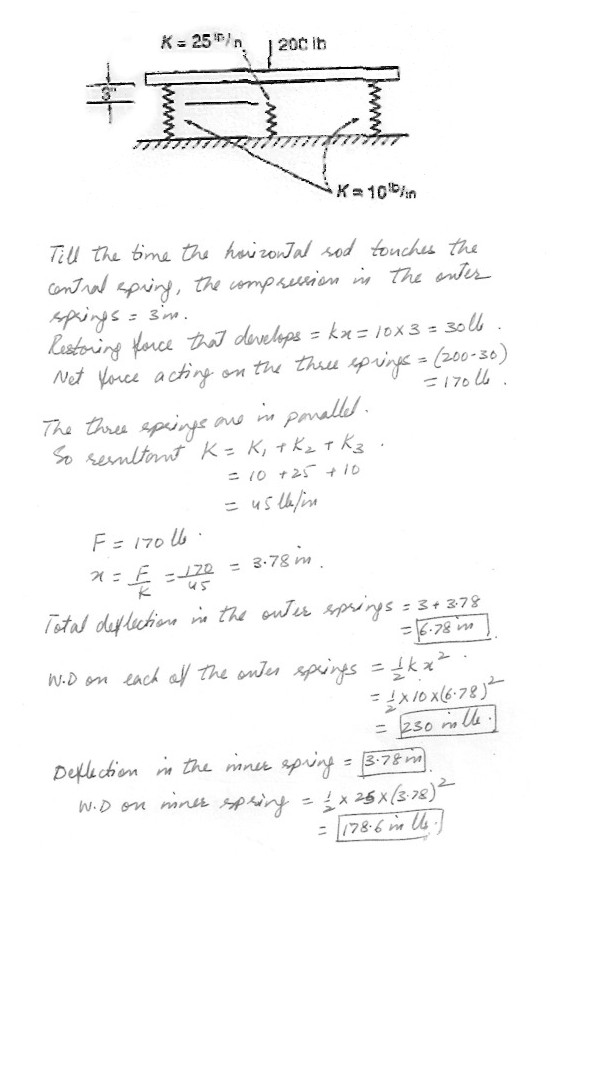 K = 25 lb/in
200 lb
3"
K = 10 lb/in
Till the time the horizontal rod touches the
central spring, the compression in the outer
springs = 3 in.
Restoring force that develops = kx = 10x3 = 30 lb.
Net force acting on the three springs = (200-30)
= 170 lb.
The three springs are in parallel.
So resultant K = K₁ + K₂ + K₃.
= 10 + 25 + 10
= 45 lb/in
F = 170 lb.
x = F/K = 170/45 = 3.78 in.
Total deflection in the outer springs = 3 + 3.78
= 6.78 in
W.D on each of the outer springs = ½kx².
= ½ x 10 x (6.78)²
= 230 in lb.
Deflection in the inner spring = 3.78 in
W.D on inner spring = ½ x 25 x (3.78)²
= 178.6 in lb.